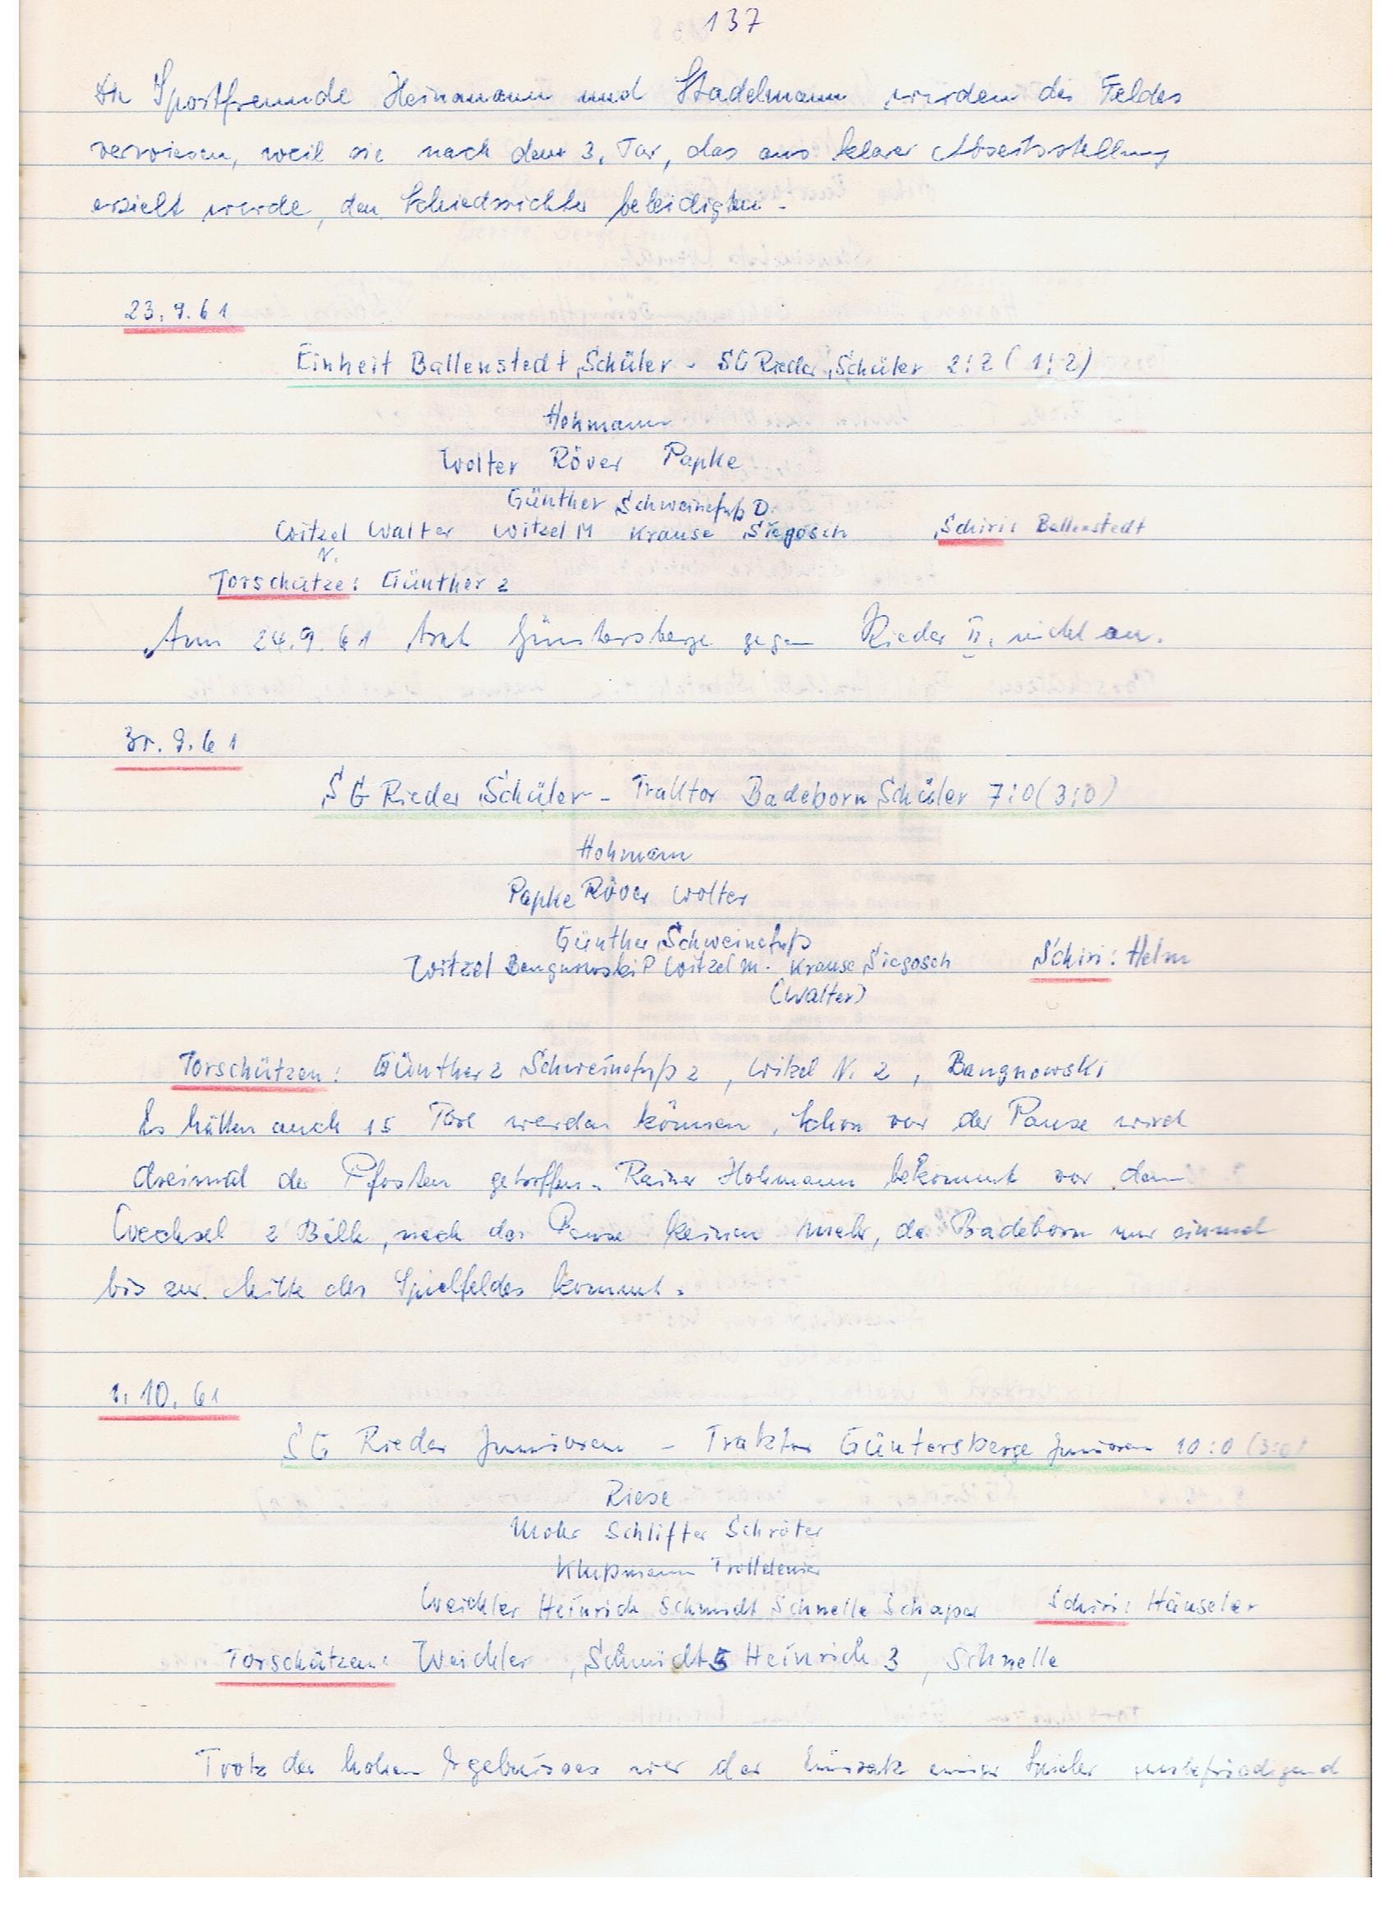 137
Die Sportfreunde Heinemann und Stadelmann wurden des Feldes
verwiesen, weil sie nach dem 3. Tor, das aus klarer Abseitsstellung
erzielt wurde, den Schiedsrichter beleidigten.
23.9.61
Einheit Ballenstedt Schüler - SG Rieder Schüler 2:2 (1:2)
Hohmann
Wolter Röver Papke
Günther Schweinefuß D.
Witzel Walter Witzel M Krause Siegosch Schiri: Ballenstedt
N.
Torschütze: Günther 2
Am 24.9.61 trat Güntersberge gegen Rieder II. nicht an.
30.9.61
SG Rieder Schüler - Traktor Badeborn Schüler 7:0 (3:0)
Hohmann
Papke Röver Wolter
Günther Schweinefuß
Witzel Bengnowski P Witzel M. Krause Siegosch Schiri: Helm
(Walter)
Torschützen: Günther 2 Schweinefuß 2, Witzel N. 2, Bangnowski
Es hätten auch 15 Tore werden können. Schon vor der Pause wird
dreimal der Pfosten getroffen. Rainer Hohmann bekommt vor dem
Wechsel 2 Bälle, nach der Pause keinen mehr, da Badeborn nur einmal
bis zur Mitte des Spielfeldes kommt.
1.10.61
SG Rieder Junioren - Traktor Güntersberge Junioren 10:0 (3:0)
Riese
Mohr Schlifter Schröter
Klußmann Trolldenier
Weichler Heinrich Schmidt Schnelle Schaper Schiri: Häuseler
Torschützen: Weichler, Schmidt 5 Heinrich 3, Schnelle
Trotz des hohen Ergebnisses war der Einsatz einiger Spieler unbefriedigend